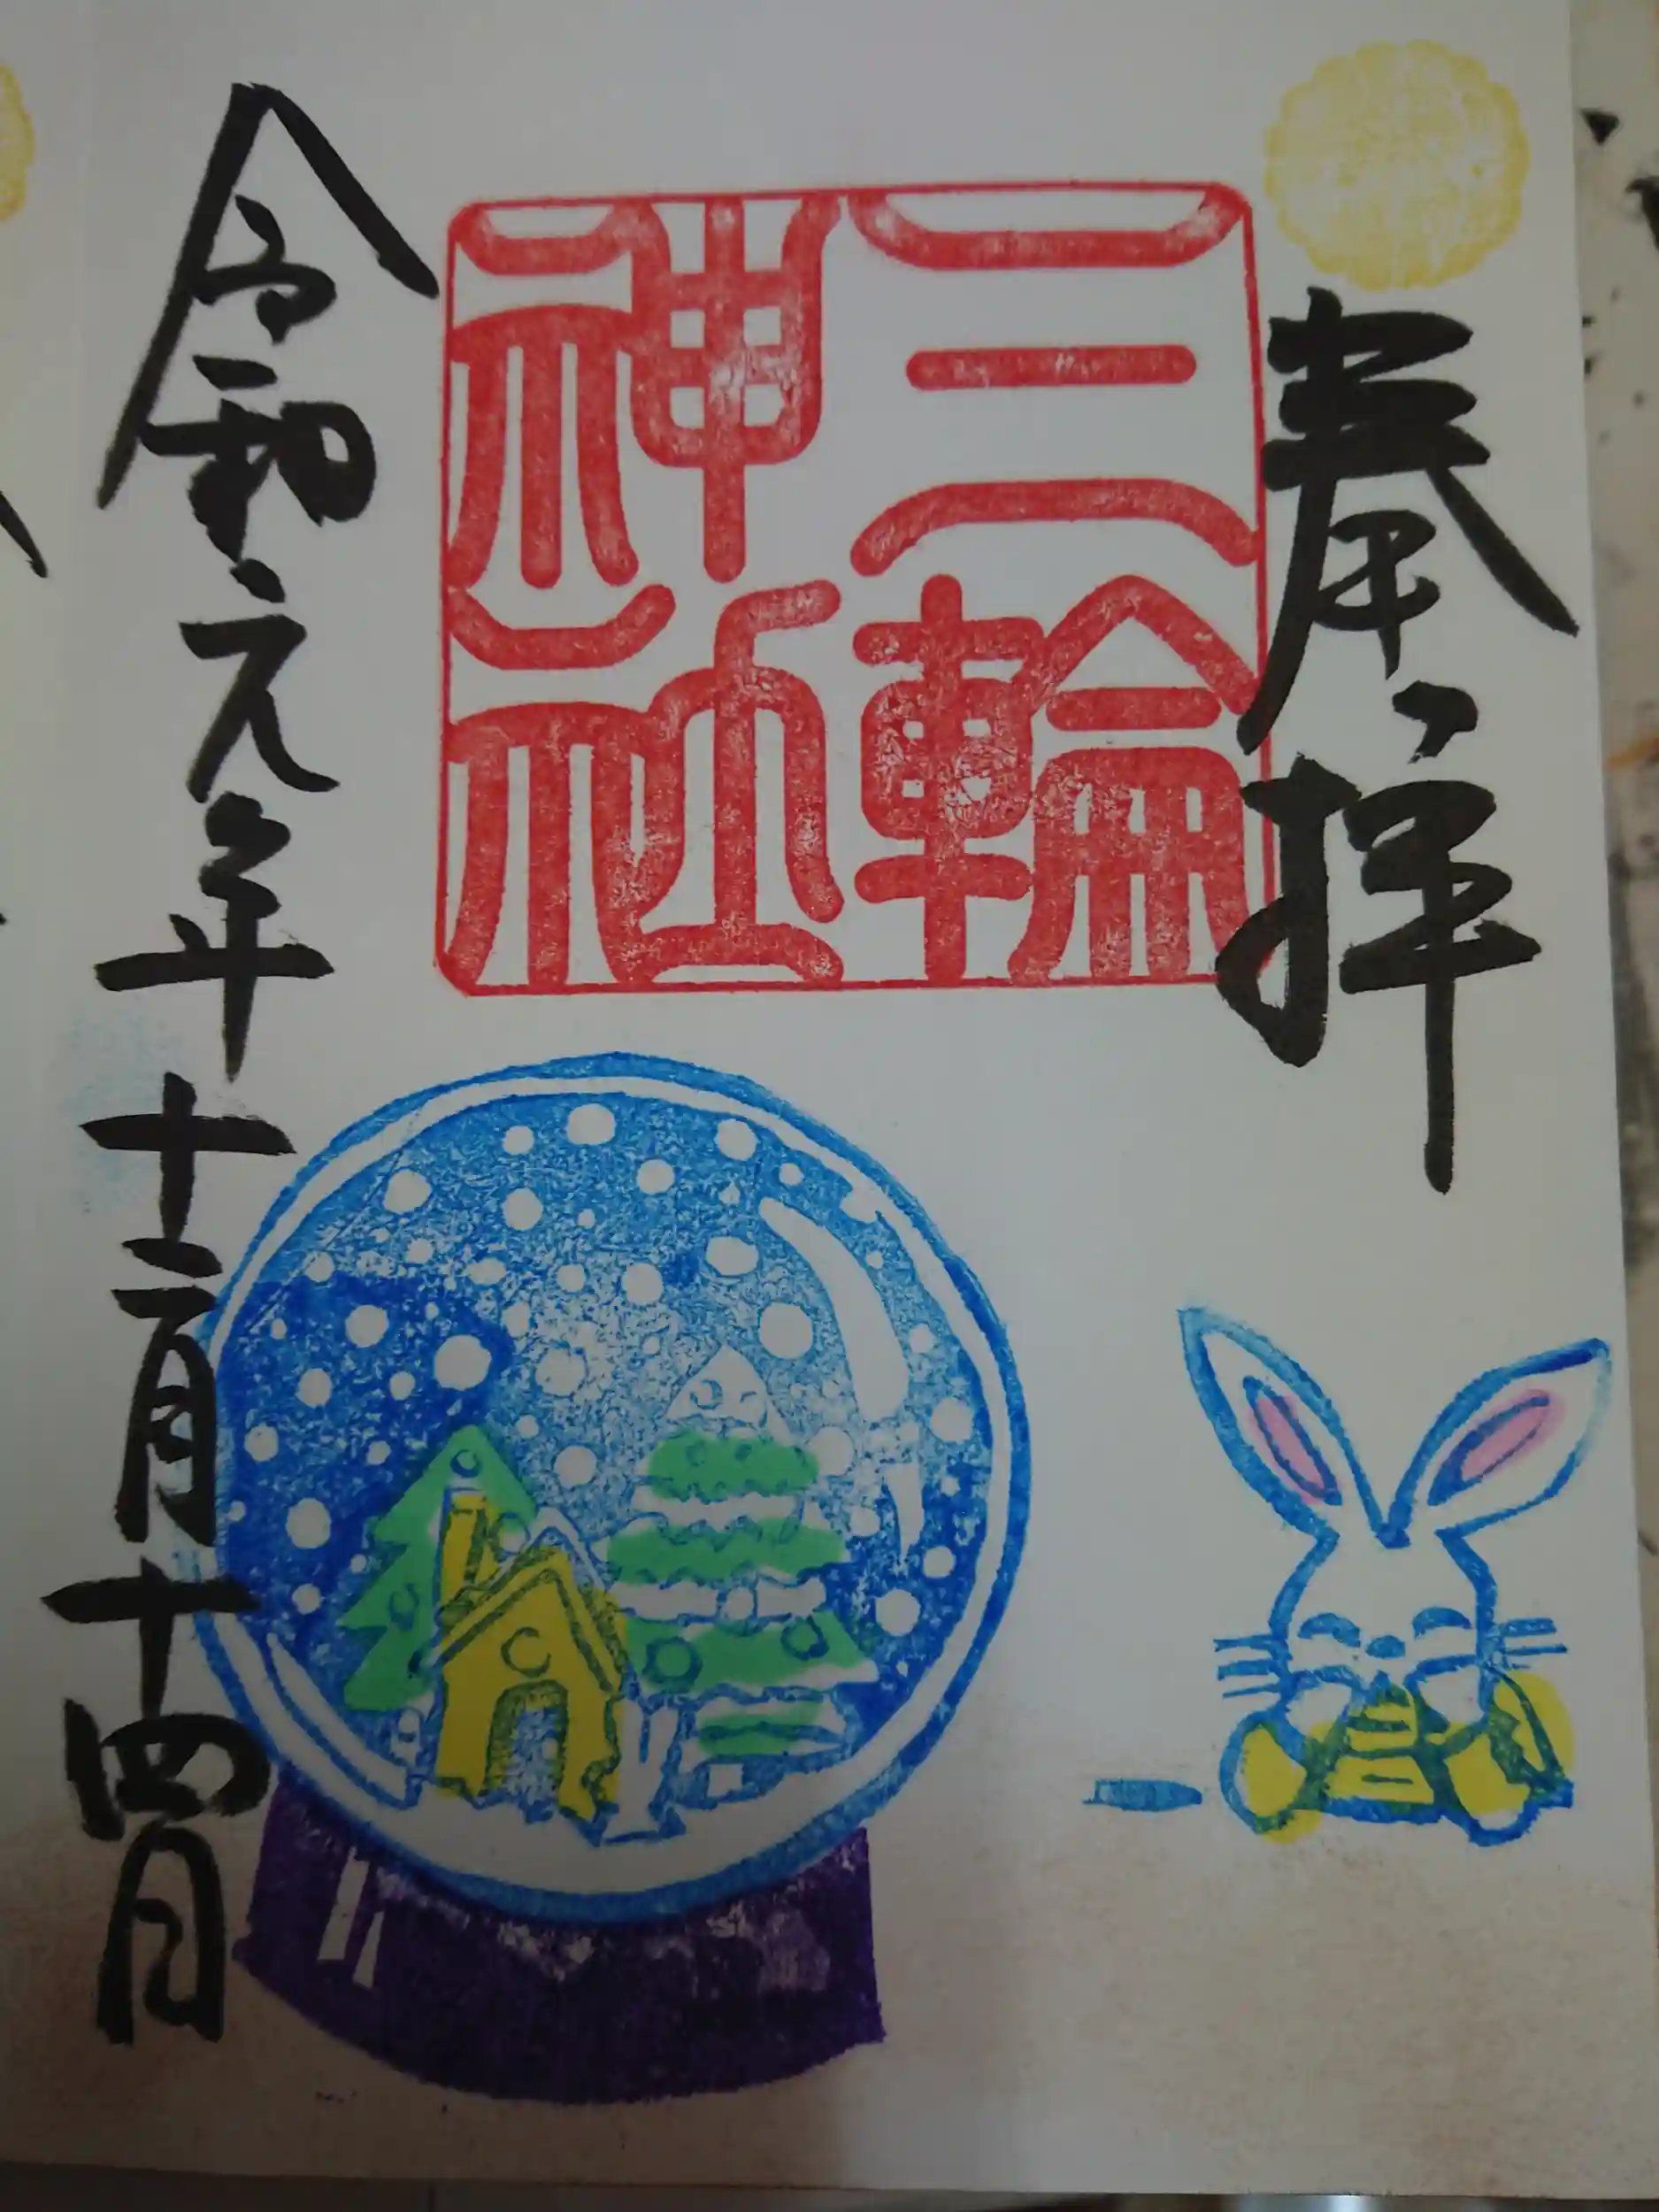 奉拝
三輪神社
令和元年十二月十四日